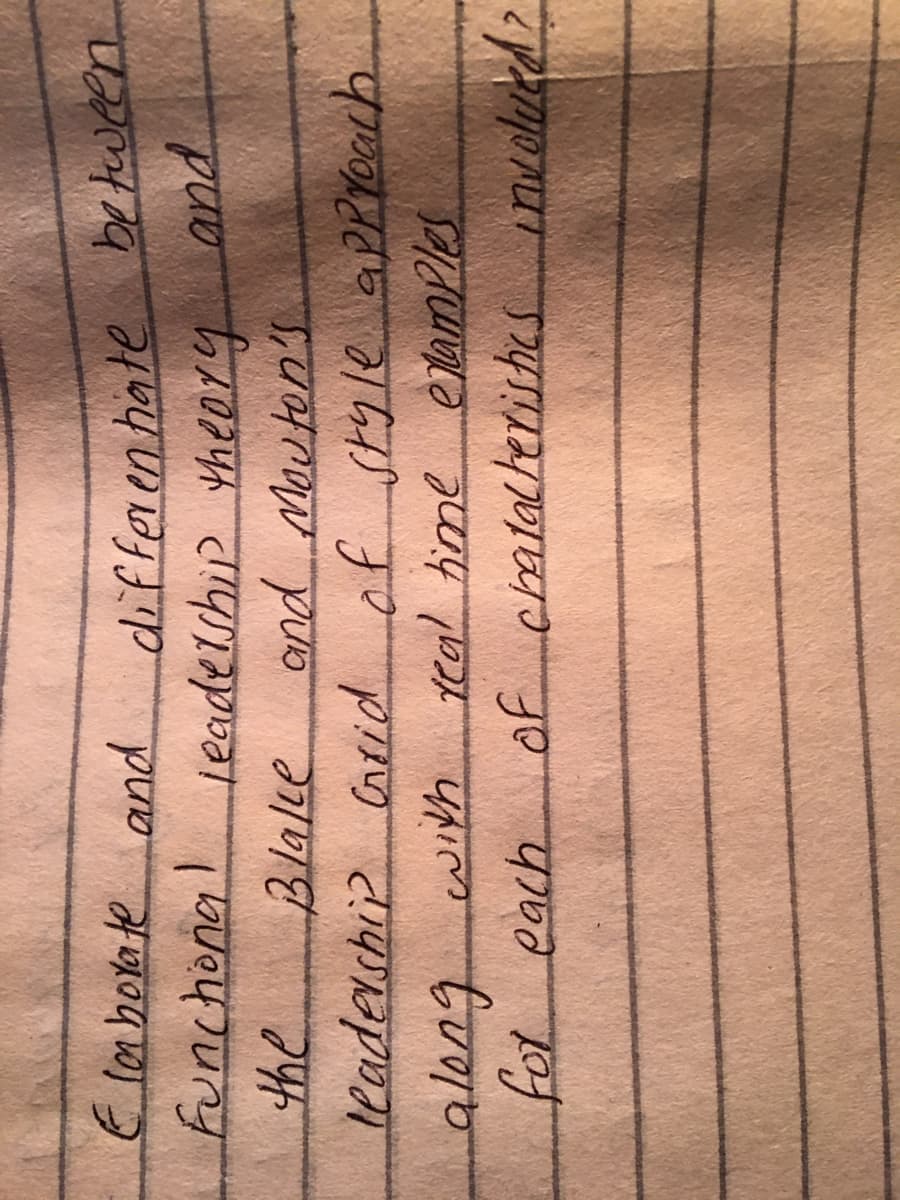 Elaborate and differentiate between
Functional leadership theory and
the Blake and Mouton's
leadership Grid of style approach
along with real time examples
for each of characteristics involved?